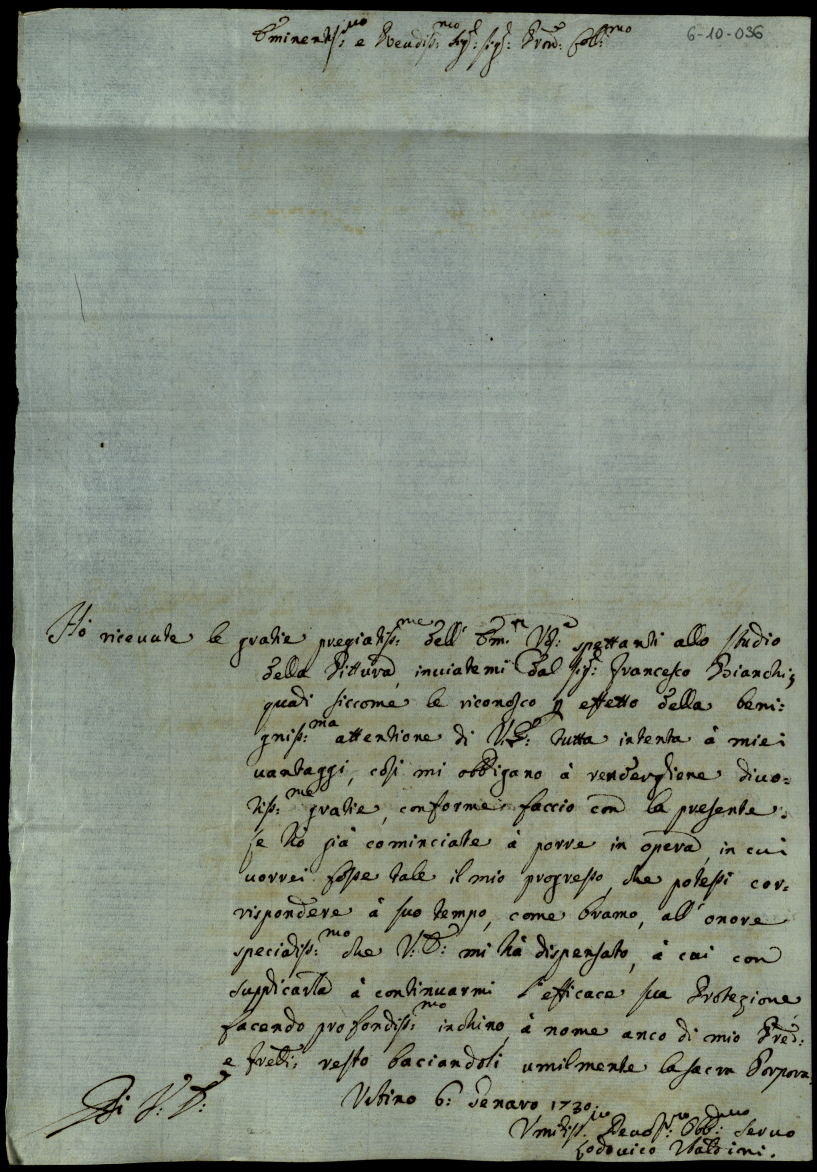 6-10-036
Eminentiss:mo e Revdiss:mo Sigr: Sigr: Pron: Coll:mo
Hò riceuute le gratie pregiatiss:me dell' Em:za Vra: spettanti allo studio
della Pittura, inuiatemi dal Sigr: Francesco Bianchi,
quali siccome le riconosco p effetto della beni-
gniss:ma attentione di V.E: tutta intenta à miei
uantaggi, così mi obbligano à rendergliene diuo-
tiss:me gratie, conforme faccio con la presente.
Le hò già cominciate à porre in opera, in cui
uorrei fosse tale il mio progresso, che potessi cor-
rispondere à suo tempo, come bramo, all' onore
specialiss:mo che V:E: mi hà dispensato, à cui con
supplicarla à continuarmi l'efficace sua Protezione,
facendo profondiss:mo inchino, à nome anco di mio Pred:
e frelli: resto baciandoli umilmente la sacra Porpora
Di V: E:
Urbino 6: Genaro 1730:
Umiliss:mo Deuotiss:mo Obb:mo Seruo
Lodouico